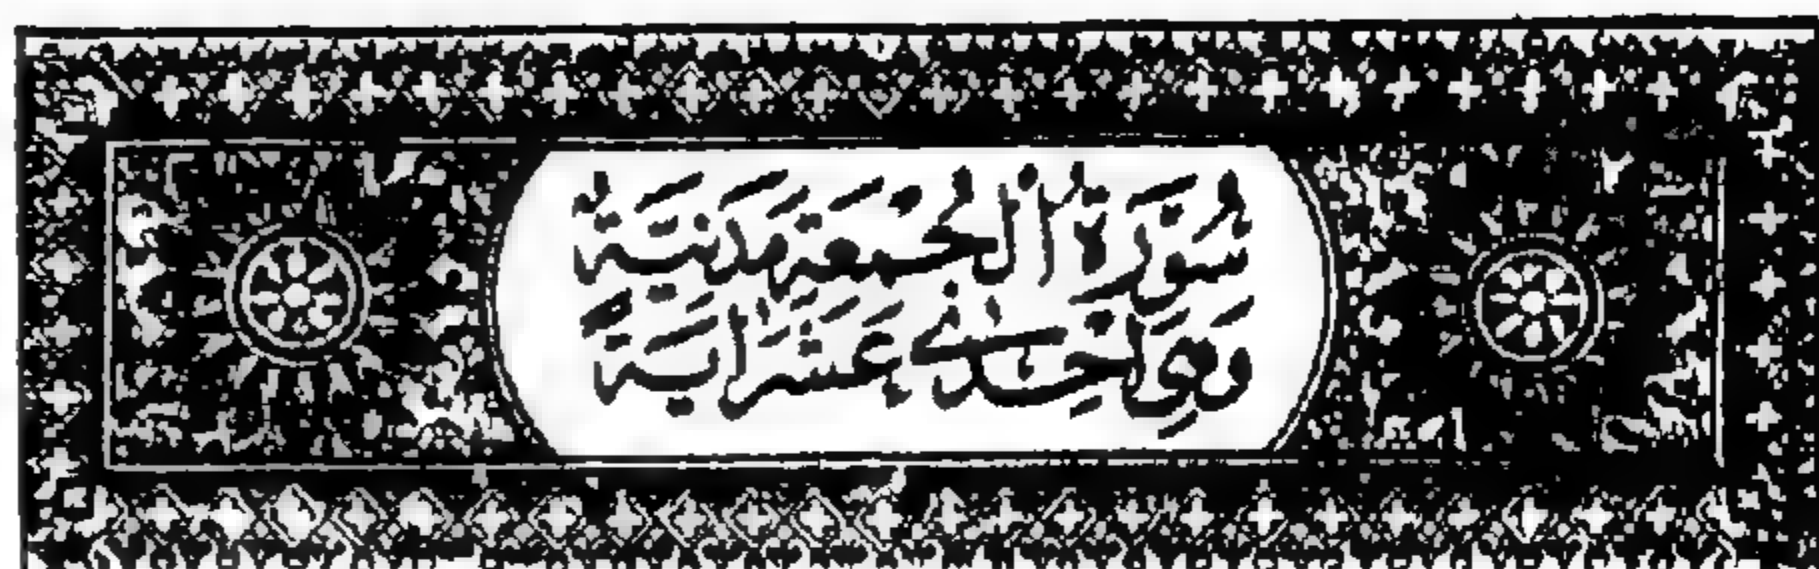 سُوْرَةُ الْجُمُعَةِ مَدَنِيَّةٌ
وَهِيَ إِحْدٰى عَشَرَ اٰيَةً